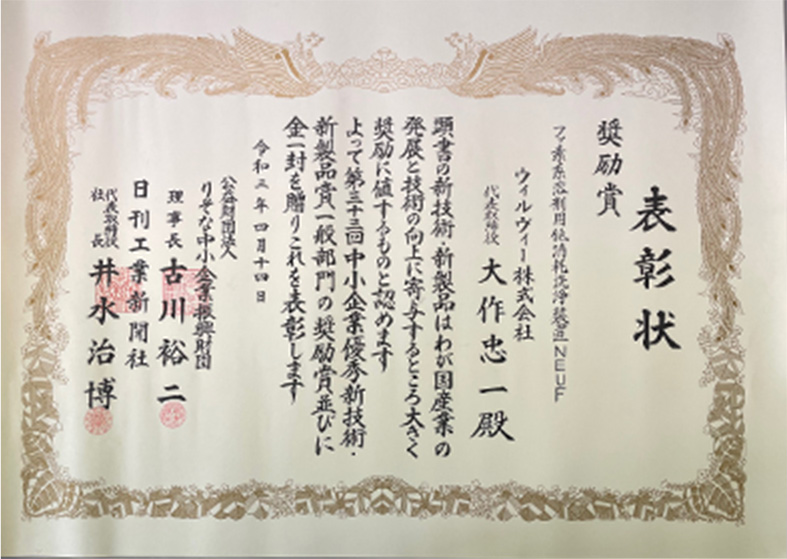 表彰状
奨励賞
フッ素系溶剤用低消耗洗浄装置 NEUF
ウィルヴィー株式会社
代表取締役 大作忠一殿
顕書の新技術・新製品はわが国産業の
発展と技術の向上に寄与するところ大きく
奨励に値するものと認めます
よって第三十三回中小企業優秀新技術・
新製品賞一般部門の奨励賞並びに
金一封を贈りこれを表彰します
令和三年四月十四日
公益財団法人
りそな中小企業振興財団
理事長 古川裕二
日刊工業新聞社
代表取締役
社長 井水治博